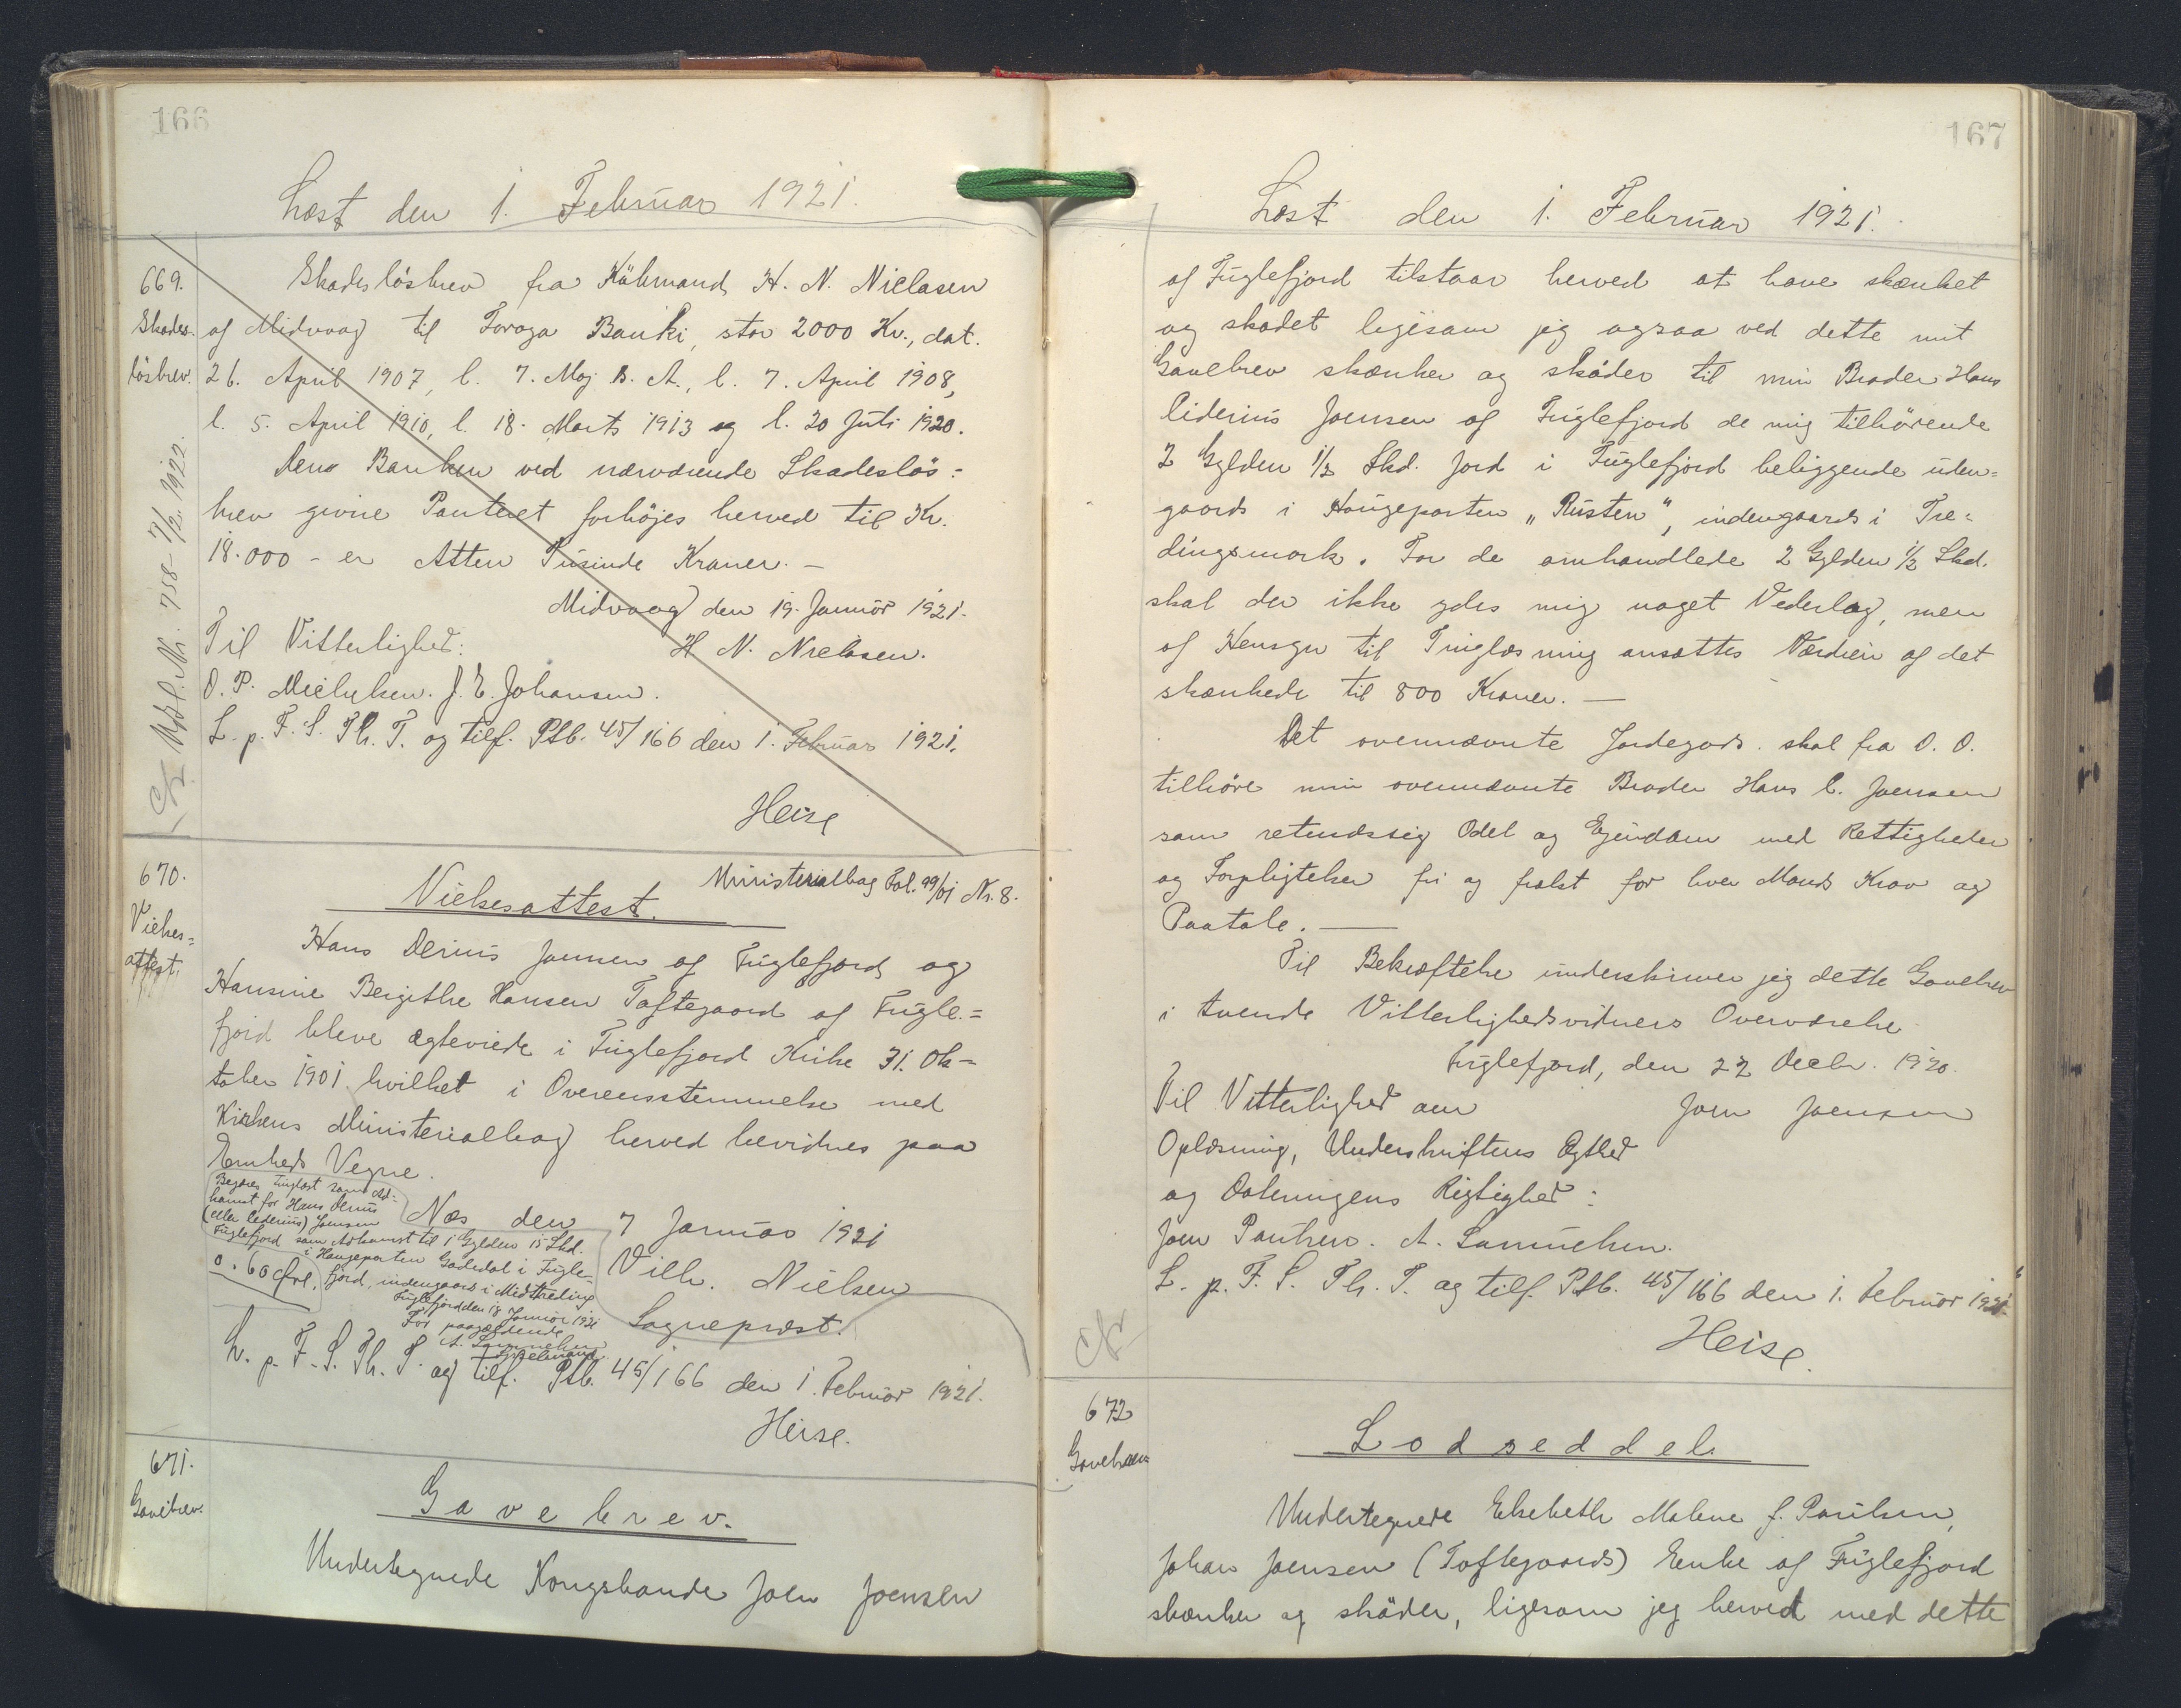 166
Læst den 1. Februar 1921.
669.
Skades-
løsbrev.
Cfr. Udsl. Nr. 758 - 7/2 1922.
Skadesløsbrev fra Købmand H. N. Nielasen
af Midvaag til Føroya Banki, stor 2000 Kr., dat.
26. April 1907, l. 7. Maj s. A., l. 7. April 1908,
l. 5. April 1910, l. 18. Marts 1913 og l. 20 Juli 1920.
Den Banken ved nærværende Skadesløs=
brev givne Panteret forhøjes herved til Kr.
18.000 - er Atten Tusinde Kroner. -
Midvaag den 19. Januar 1921.
Til Vitterlighed: H. N. Nielasen.
O. P. Michelsen. J. E. Johansen.
L. p. F. S. Th. T. og tilf. Ptb. 45/166 den 1. Februar 1921.
Heise
670.
Vielses=
attest.
Vielsesattest. Ministerialbog Fol. 99/01 Nr. 8.
Hans Derius Joensen af Fuglefjord og
Hansine Bergithe Hansen Toftegaard af Fugle=
fjord bleve ægteviede i Fuglefjord Kirke 31. Ok=
tober 1901 hvilket i Overensstemmelse med
Kirkens Ministerialbog herved bevidnes paa
Embeds Vegne.
Næs den 7 Januar 1921
Vilh. Nielsen
Sognepræst.
0.60 Øre.
Begæres tinglæst som Ad=
komst for Hans Derius
(eller liderius) Joensen
Fuglefjord som Adkomst til 1 Gylden 15 Skd.
i Haugeparten Gadedal i Fugle=
fjord, indengaards i Midttreding
Fuglefjord den 18 Januar 1921
For paagældende
A. Samuelsen
L. p. F. S. Th. T. og tilf. Ptb. 45/166 den 1. Februar 1921.
Heise.
671.
Gavebrev.
Gavebrev.
Undertegnede Kongsbonde Joen Joensen
167
Læst den 1. Februar 1921.
af Fuglefjord tilstaar herved at have skænket
og skødet ligesom jeg ogsaa ved dette mit
Gavebrev skænker og skøder til min Broder Hans
liderius Joensen af Fuglefjord de mig tilhørende
2 Gylden 1/2 Skd. Jord i Fuglefjord beliggende uden=
gaards i Haugeparten "Rusten", indengaards i Tre=
dingsmark. For de omhandlede 2 Gylden 1/2 Skd.
skal der ikke ydes mig noget Vederlag, men
af Hensyn til Tinglæsning ansættes Værdien af det
skænkede til 800 Kroner. -
Det ovennævnte Jordegods skal fra D. D.
tilhøre min ovennævnte Broder Hans l. Joensen
som retmæssig Odel og Ejendom med Rettigheder
og Forpligtelser fri og frelst for hver Mands Krav og
Paatale. -
Til Bekræftelse underskriver jeg dette Gavebrev
i tvende Vitterlighedsvidners Overværelse
Fuglefjord, den 22 Decbr. 1920.
Til Vitterlighed om Joen Joensen
Oplæsning, Underskriftens Ægthed
og Dateringens Rigtighed:
Joen Poulsen. A. Samuelsen.
L. p. F. S. Th. T. og tilf. Ptb. 45/166 den 1. Februar 1921.
Heise.
Cfr
672
Gavebrev
Lodseddel.
Undertegnede Elsebeth Malene f. Poulsen,
Johan Joensen (Toftegaards) Enke af Fuglefjord
skænker og skøder, ligesom jeg herved med dette